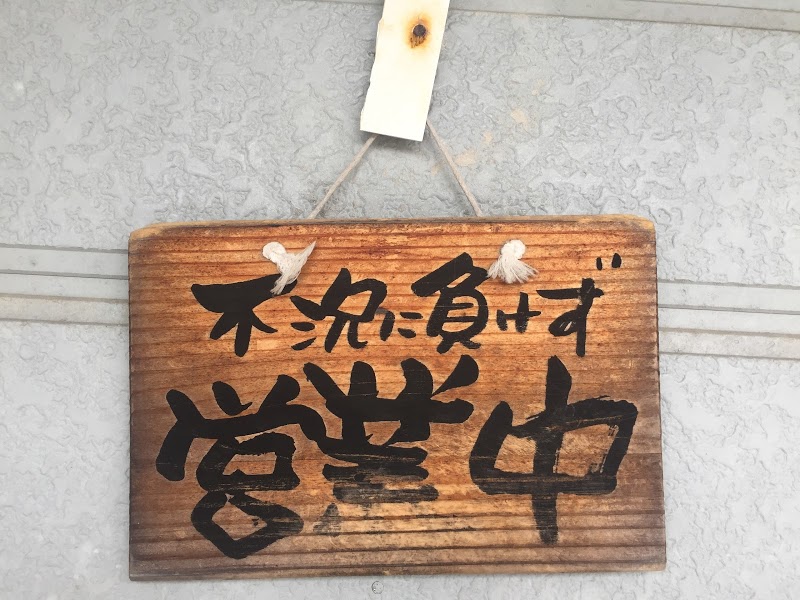 不況に負けず
営業中